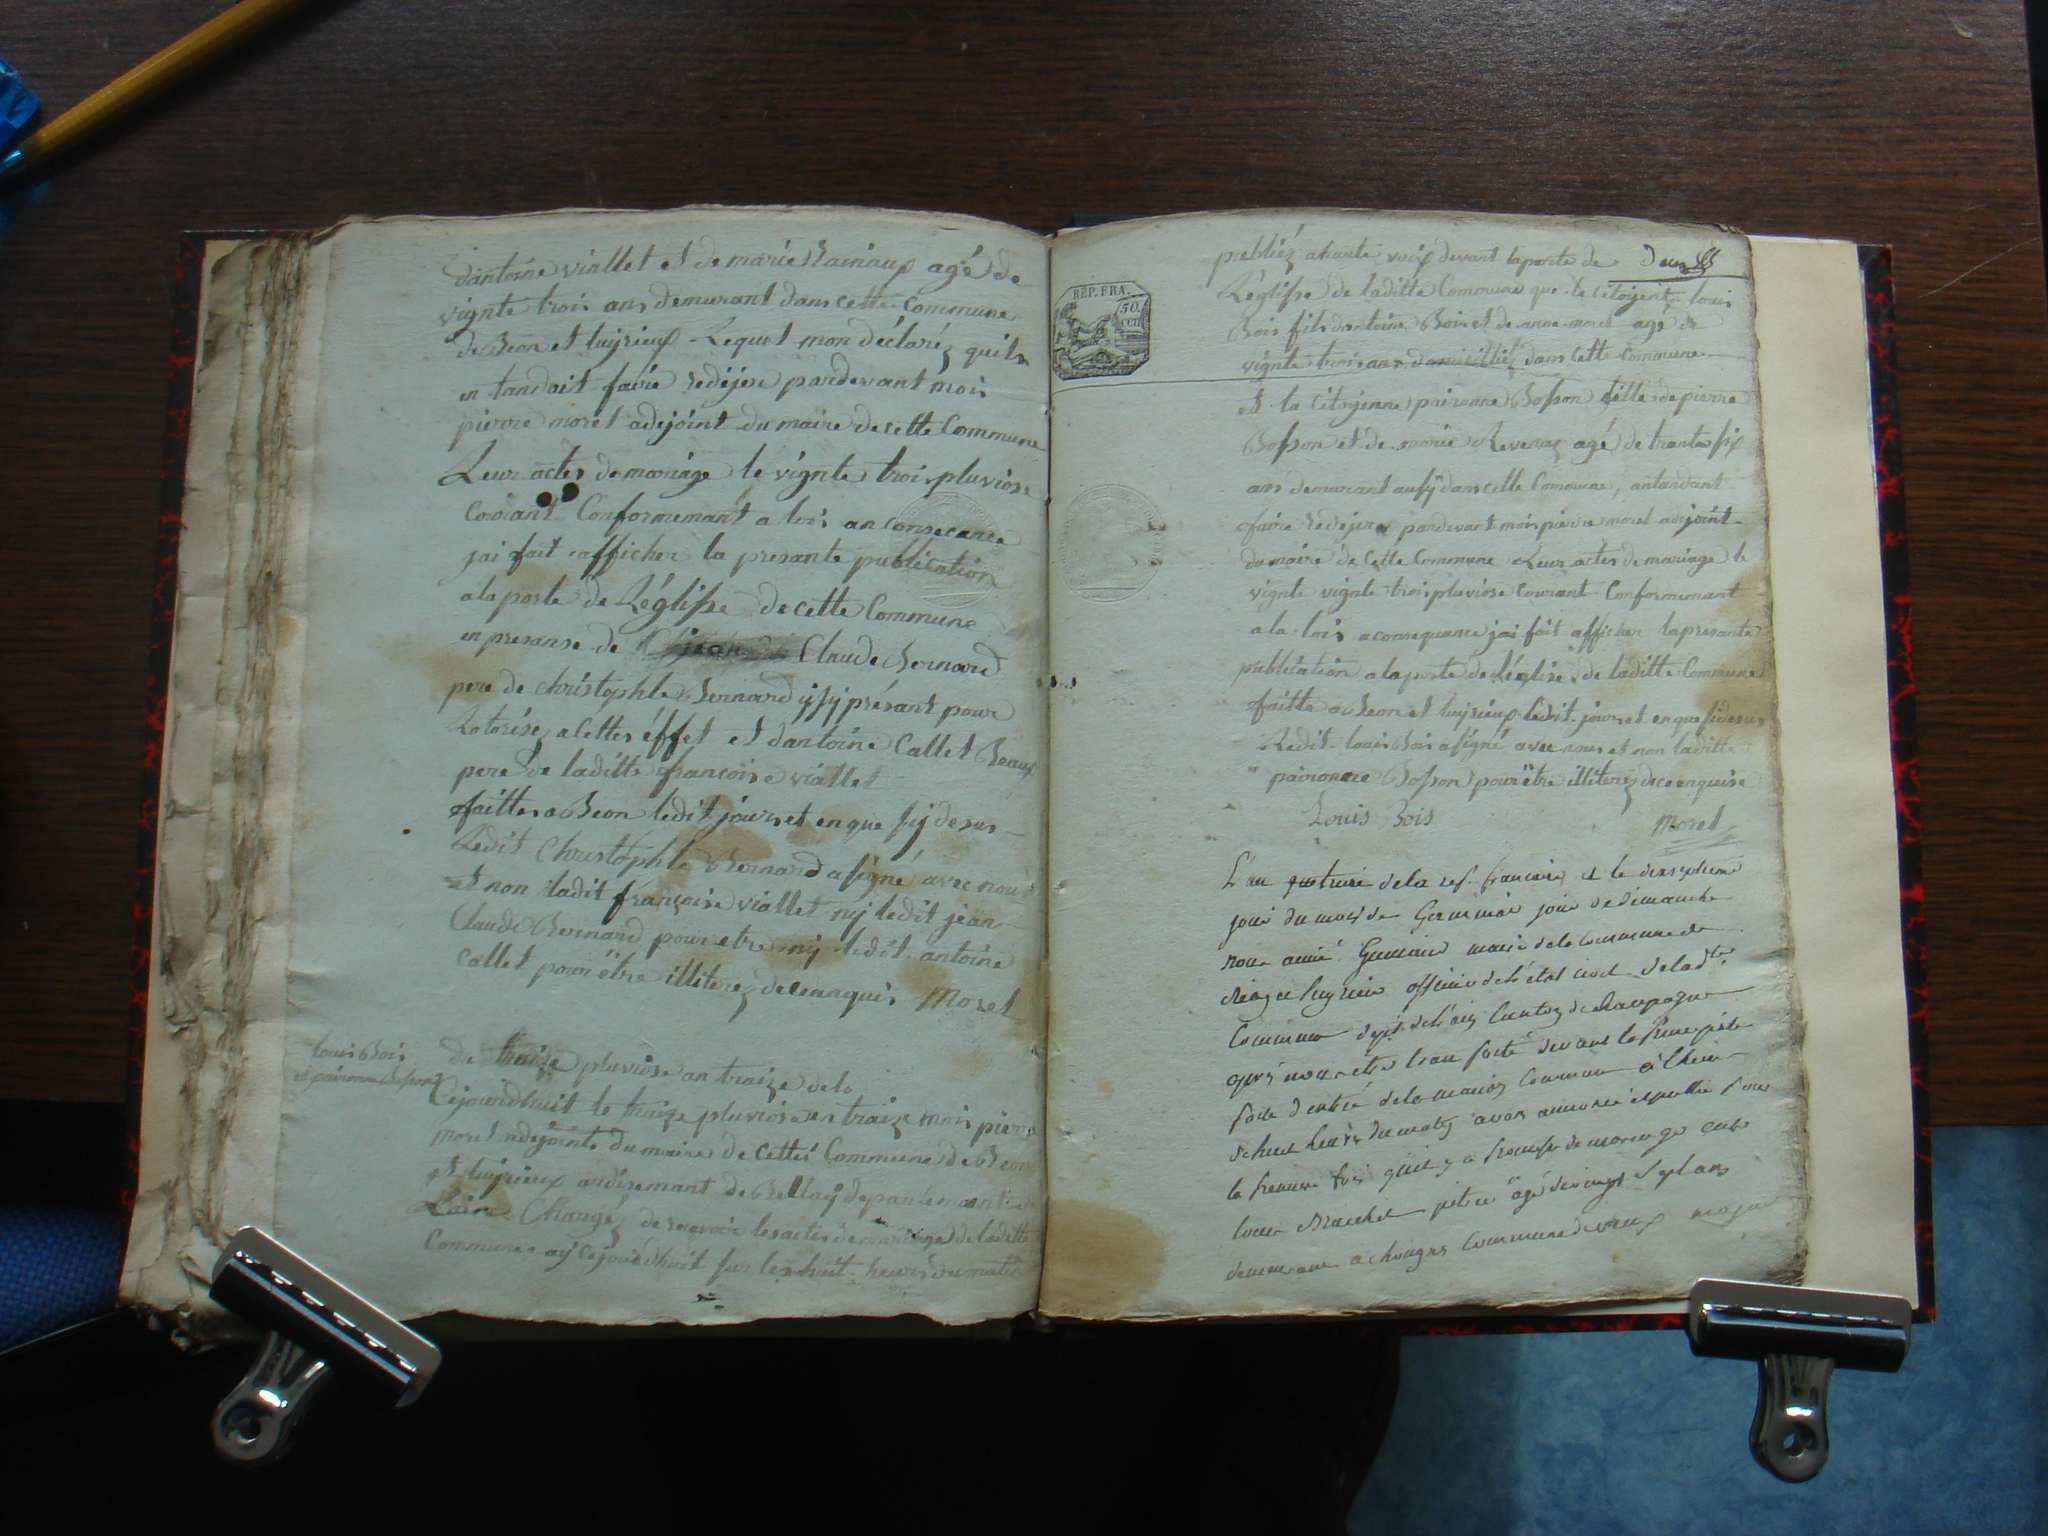 dantoine viallet et de marie Rainaux agé de
vignte trois ans demurant dans cette Commune
de Beon et luyrieux Lequel mon déclaréz quils
en tandait faire redéjere pardevant moi
pierre morel adejoint du maire de cette Commune
Leur actes de mariage le vignte trois pluviose
Courant Conformemant a lois an consecance
jai fait afficher la presante publication
a la porte de Léglisse de cette Commune
en presanse de Claude Bernard
pere de christophle Bernard ysy présant pour
Lotorisez a cettes éffet et dantoine Callet Beaux
pere de laditte françoise viallet
faittes a Beon ledit jours et en que sy desus
Ledit Christophle Bernard a signé avec nous
Et non ladit françoise viallet ny ledit jean
Claude Bernard pour etre ny ledit antoine
Callet pour être illiterez de ce anquis Morel
louis Bois
et paironne Bosson
du traize pluviose an traize de la
Cejourdhuit le traize pluviose an traize moi pierre
morel adejoint du maire de cettes Commune de Beon
et luyrieux ardisemant de Bellay departemant
Lain Chargéz de recevoir les actes de mariage de laditte
Commune ay Cejourdhuit sur les huit heures du matin
publiéz ahaute voix devant laporte de deux
REP. FRA.
50
cen
Léglisse de laditte Commune que le Citoyent louis
Bois fils dantoine Bois et de anne morel agé de
vignte trois ans domicilliéz dans cette Commune
et la Citoyenne paironne Bosson fille de pierre
Bosson et de marie Reveraz agé de trante six
ans demurant ausy dans cette Commune, antandant
faire redejere pardevant moi pierre morel adjoint
du maire de cette Commune Leur actes de mariage le
vignte vignte trois pluviose Courant Conformemant
a la lois aconsequance jai fait afficher la presante
publication a la porte de léglise de laditte Commune
faitte a Beon et luyrieux ledit jour et en que sidesus
Ledit louis Bois a signé avec nous et non laditte
paironne Bosson pour être illiterez de ce enquise
Louis Bois Morel
L'an de la rep. francaise et le dixseptieme
jour du mois de Germinal jour de dimanche
nous aimé maire de la Commune de
Béon et luyrieu officier de l'état civil de lad.te
Commune dep.t de l'ain Canton de Champagne
après nous etre transporté devant la principale
porte d'entrée de la maison Commune à l'heure
de huit heures du matin avons annoncé et publié pour
la premiere fois qu'il y a promesse de mariage entre
agé de vingt sept ans
demeurant a Commune de vieux